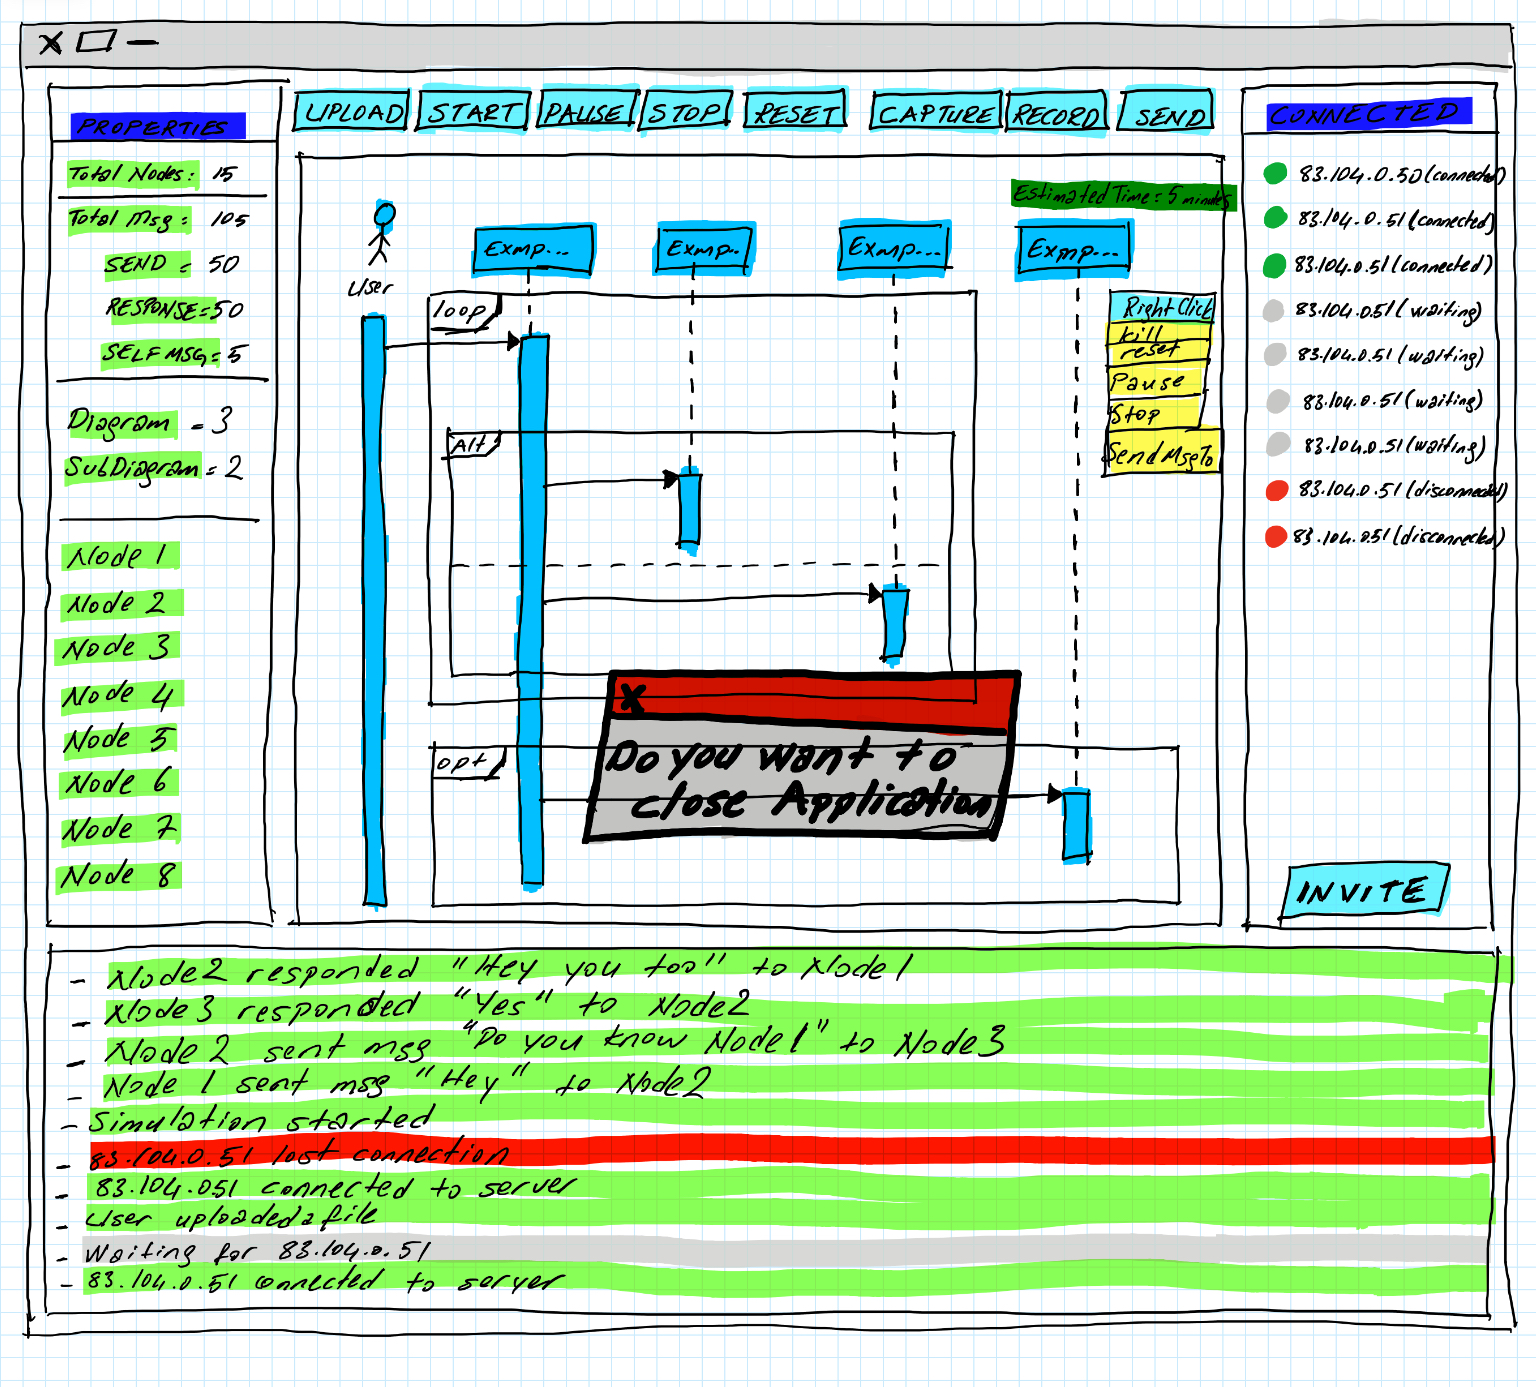 UPLOAD START PAUSE STOP RESET CAPTURE RECORD SEND
PROPERTIES
Total Nodes: 15
Total Msg: 105
SEND = 50
RESPONSE=50
SELF MSG= 5
Diagram = 3
SubDiagram = 2
Node 1
Node 2
Node 3
Node 4
Node 5
Node 6
Node 7
Node 8
Estimated Time = 5 minutes
User
Exmp...
Exmp..
Exmp...
Exmp...
loop
Alt
opt
Right Click
kill
reset
Pause
Stop
Send Msg To
X
Do you want to
close Application
CONNECTED
83.104.0.50 (connected)
83.104.0.51 (connected)
83.104.0.51 (connected)
83.104.0.51 (waiting)
83.104.0.51 (waiting)
83.104.0.51 (waiting)
83.104.0.51 (waiting)
83.104.0.51 (disconnected)
83.104.0.51 (disconnected)
INVITE
- Node2 responded "Hey you too" to Node1
- Node3 responded "Yes" to Node2
- Node 2 sent msg "Do you know Node1" to Node3
- Node 1 sent msg "Hey" to Node2
- Simulation started
- 83.104.0.51 lost connection
- 83.104.051 connected to server
- User uploaded a file
- Waiting for 83.104.0.51
- 83.104.0.51 connected to server